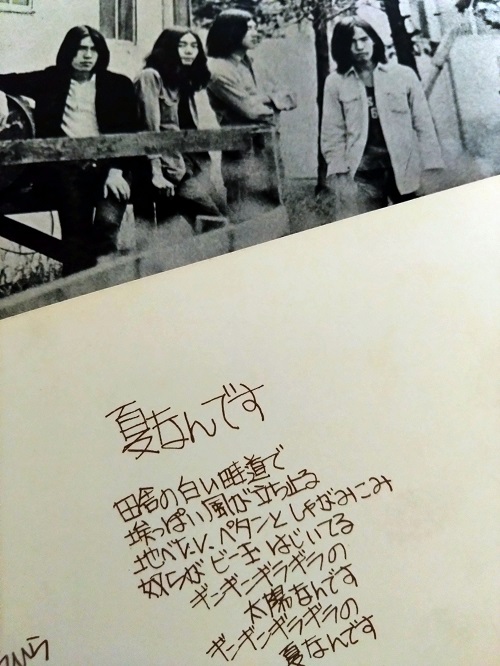 夏なんです
田舎の白い畦道で
埃っぽい風が立ち止る
地べたにペタンとしゃがみこみ
奴らがビー玉はじいてる
ギンギンギラギラの
太陽なんです
ギンギンギラギラの
夏なんです